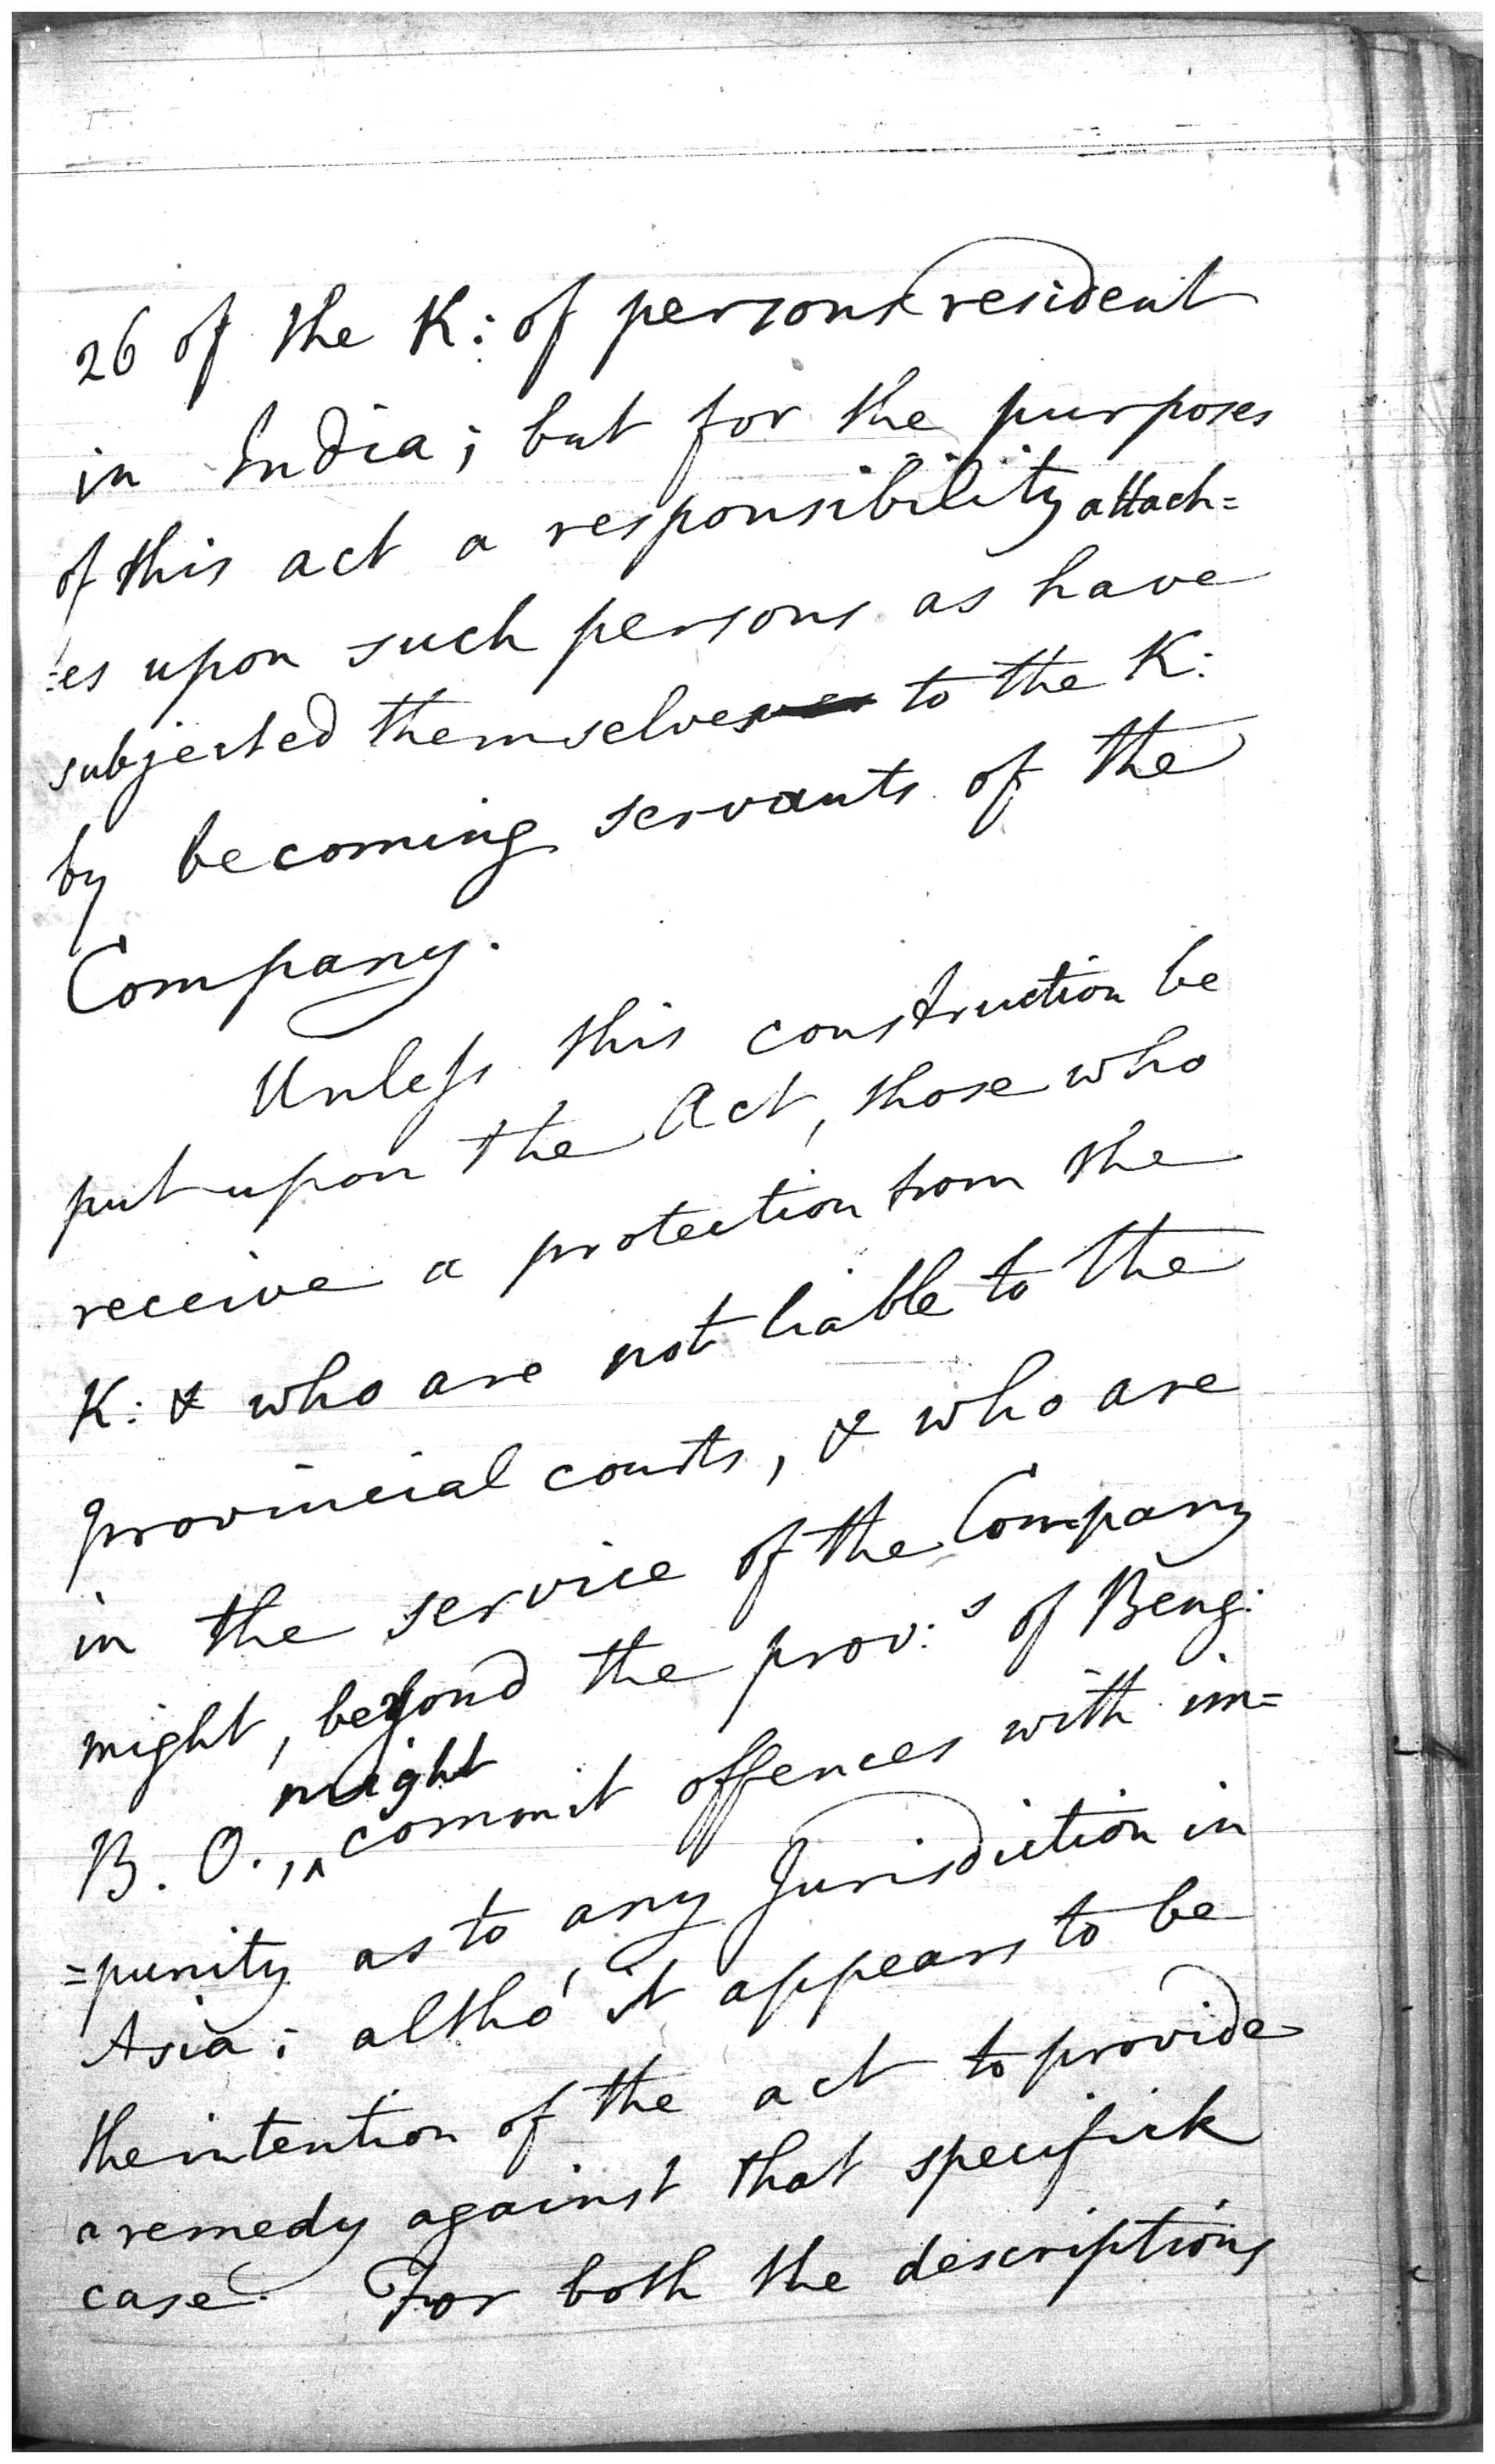 26 of the K: of persons resident
in India; but for the purposes
of this act a responsibility attach=
=es upon such persons as have
subjected themselves to the K:
by becoming servants of the
Company.
Unless this construction be
put upon the Act, those who
receive a protection from the
K: & who are not liable to the
provincial courts, & who are
in the service of the Company
might, beyond the prov:s of Beng:
might
B. O., ^ commit offences with im=
=punity as to any Jurisdiction in
Asia; altho' it appears to be
the intention of the act to provide
a remedy against that specifick
case. For both the descriptions